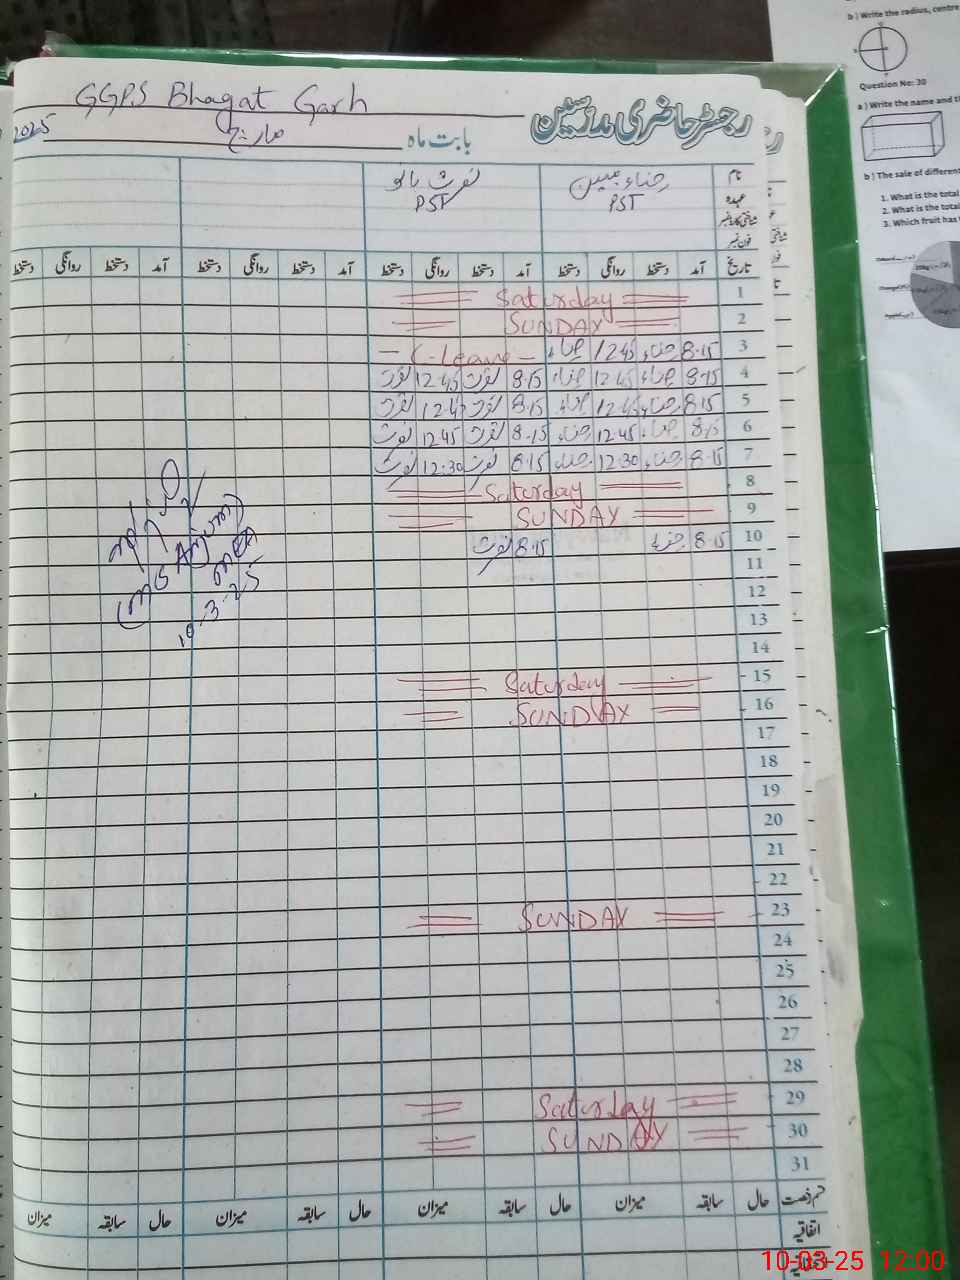 GGPS Bhagat Garh
رجسٹر حاضری مدرسین
بابت ماہ مارچ 2025
نام رضاء مبین
عہدہ PST PST
شناختی کارڈ نمبر
فون نمبر
تاریخ آمد دستخط روانگی دستخط آمد دستخط روانگی دستخط آمد دستخط روانگی دستخط آمد دستخط روانگی دستخط
1 Saturday
2 SUNDAY
3 8-15 12 45 C-Leave
4 8-15 12.45 8-15 12.45
5 8-15 12.45 8-15 12.45
6 8-15 12.45 8-15 12.45
7 8-15 12.30 8-15 12:30
8 Saturday
9 SUNDAY
10 8-15 8-15
(MS Anjum)
MEA
10-3-25
11
12
13
14
15 Saturday
16 SUNDAY
17
18
19
20
21
22
23 SUNDAY
24
25
26
27
28
29 Saturday
30 SUNDAY
31
قسم رخصت حال سابقہ میزان حال سابقہ میزان حال سابقہ میزان حال سابقہ میزان
اتفاقیہ
b ) Write the radius, centre
Question No: 30
a ) Write the name and th
b ) The sale of different
1. What is the total
2. What is the total
3. Which fruit has
10-03-25 12:00